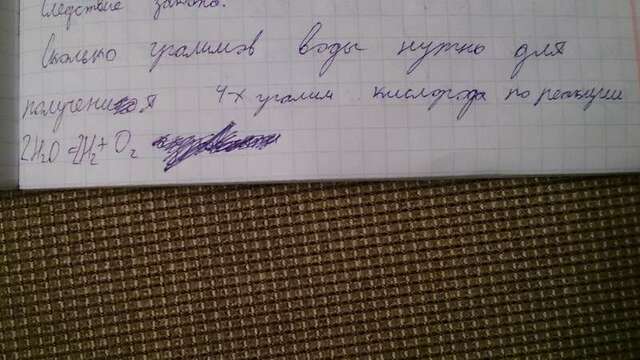 Следствие закона.
Сколько граммов воды нужно для
получения 4-х грамм кислорода по реакции
2H₂O = 2H₂ + O₂